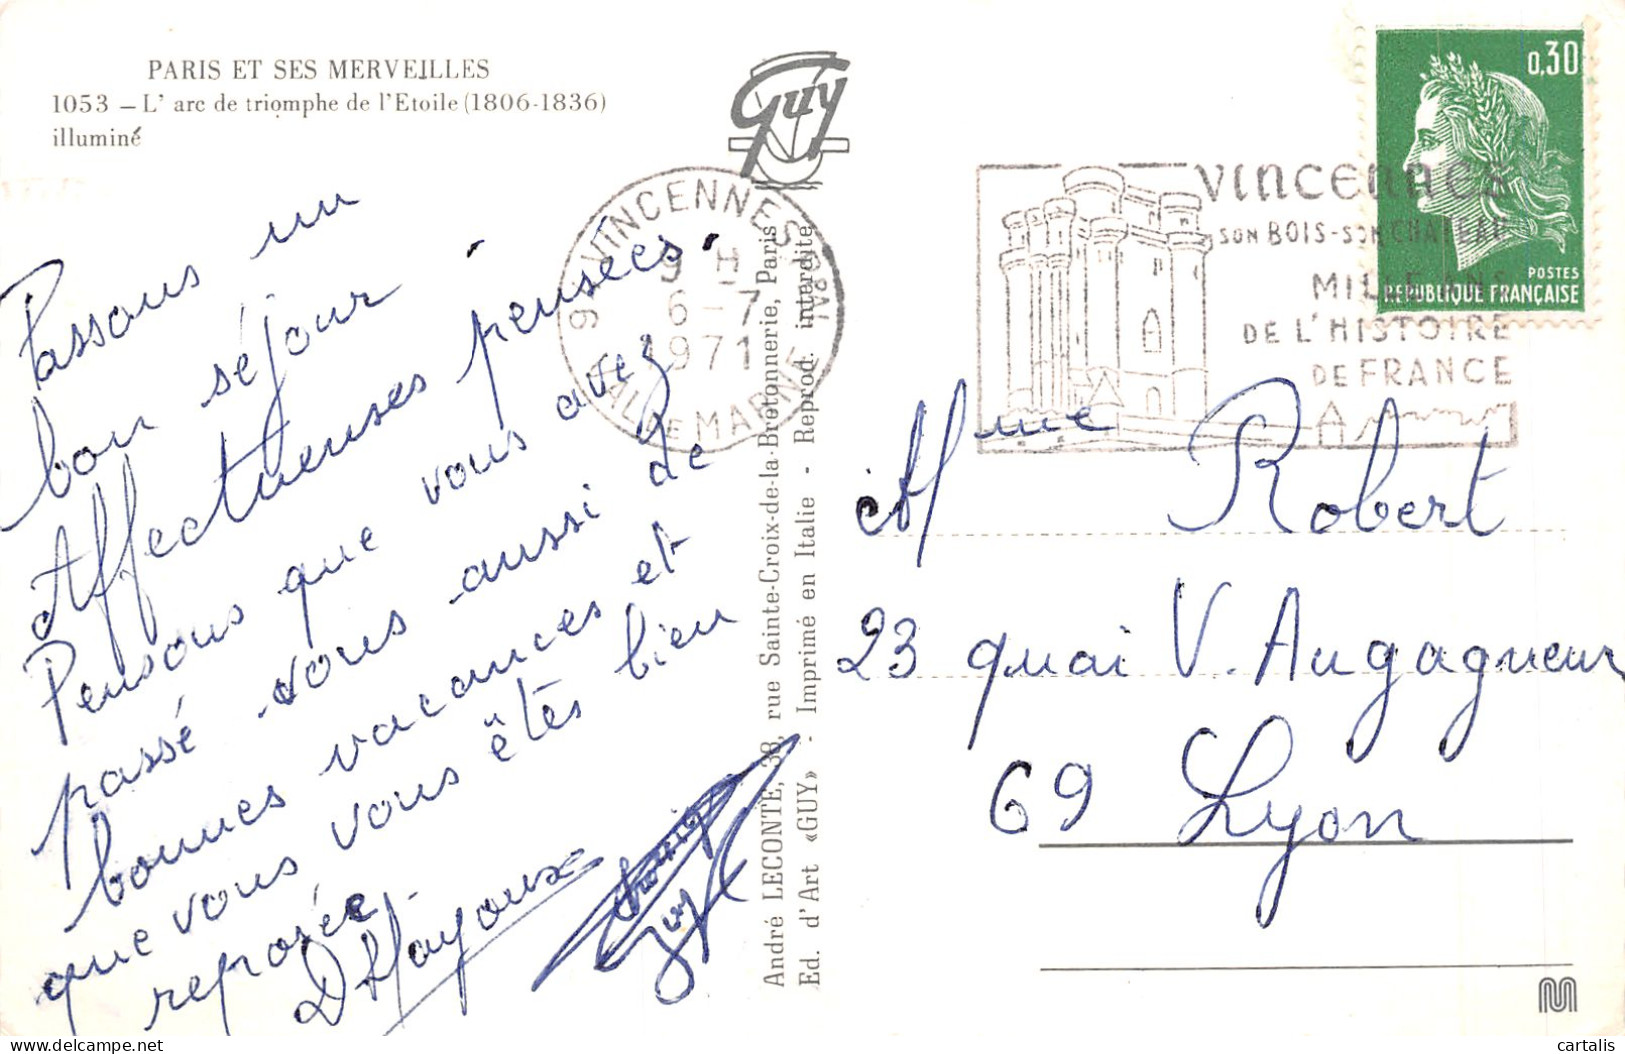 PARIS ET SES MERVEILLES
1053 – L' arc de triomphe de l'Etoile (1806-1836)
illuminé
Guy
Passons un
bon séjour.
Affectueuses pensées.
Pensons que vous avez
passé vous aussi de
bonnes vacances et
que vous vous êtes bien
reposée
André LECONTE, 38, rue Sainte-Croix-de-la-Bretonnerie, Paris
Ed. d'Art «GUY» - Imprimé en Italie - Reprod. interdite
VINCENNES
9 H
6-7
1971
VAL DE MARNE
VINCENNES
SON BOIS-SON CHATEAU
MILLE ANS
DE L'HISTOIRE
DE FRANCE
0,30
POSTES
REPUBLIQUE FRANÇAISE
Mme Robert
23 quai V. Augagneur
69 Lyon
cartalis.com